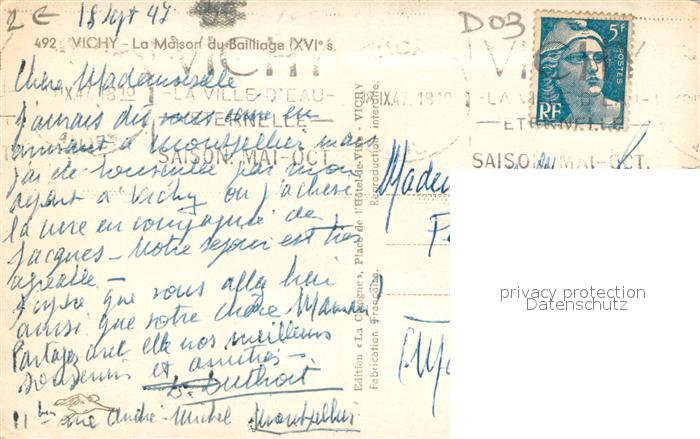 2 €
18 Sept 47
D03
492 VICHY - La Maison du Bailliage (XVIe s.
VICHY
LA VILLE D'EAU
ETERNELLE
SAISON: MAI-OCT.
18 IX 47 18 19
VICHY
ETERNELLE
SAISON MAI-OCT.
5F
POSTES
RF
Chère Mademoiselle
J'aurais dû vous
à Montpellier mais
j'ai été par mon
à Vichy où j'achève
la cure en compagnie de
Jacques - Notre séjour est très
agréable -
J'espère que vous allez bien
ainsi que votre chère Maman
Partagez avec elle nos meilleurs
souvenirs et amitiés -
11 bis rue André Michel Montpellier
Edition « La Cigogne », Place de l'Hôtel-de-Ville - VICHY
Fabrication Française. Reproduction interdite.
privacy protection
Datenschutz